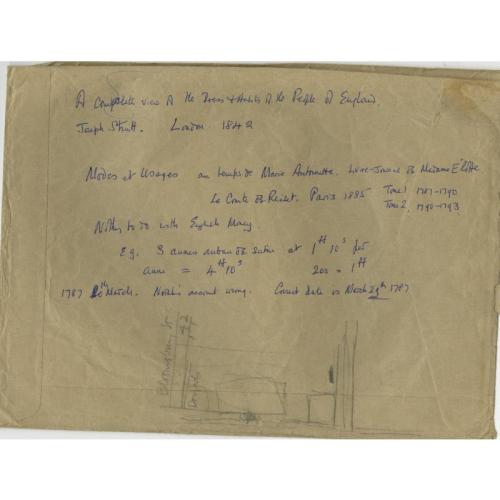 A Complete view of the Dress & Habits of the People of England.
Joseph Strutt. London 1842
Modes et Usages au temps de Marie Antoinette. Livre-Journal de Madame Éloffe
Le Comte de Reiset. Paris 1885 Tome 1 1787-1790
Tome 2, 1790-1793
Nothing to do with English Money
Eg. 3 aunes ruban de satin at 1# 10s per
aune = 4# 10s 20s = 1#
1787 March. account wrong. Correct date is March 29th 1787